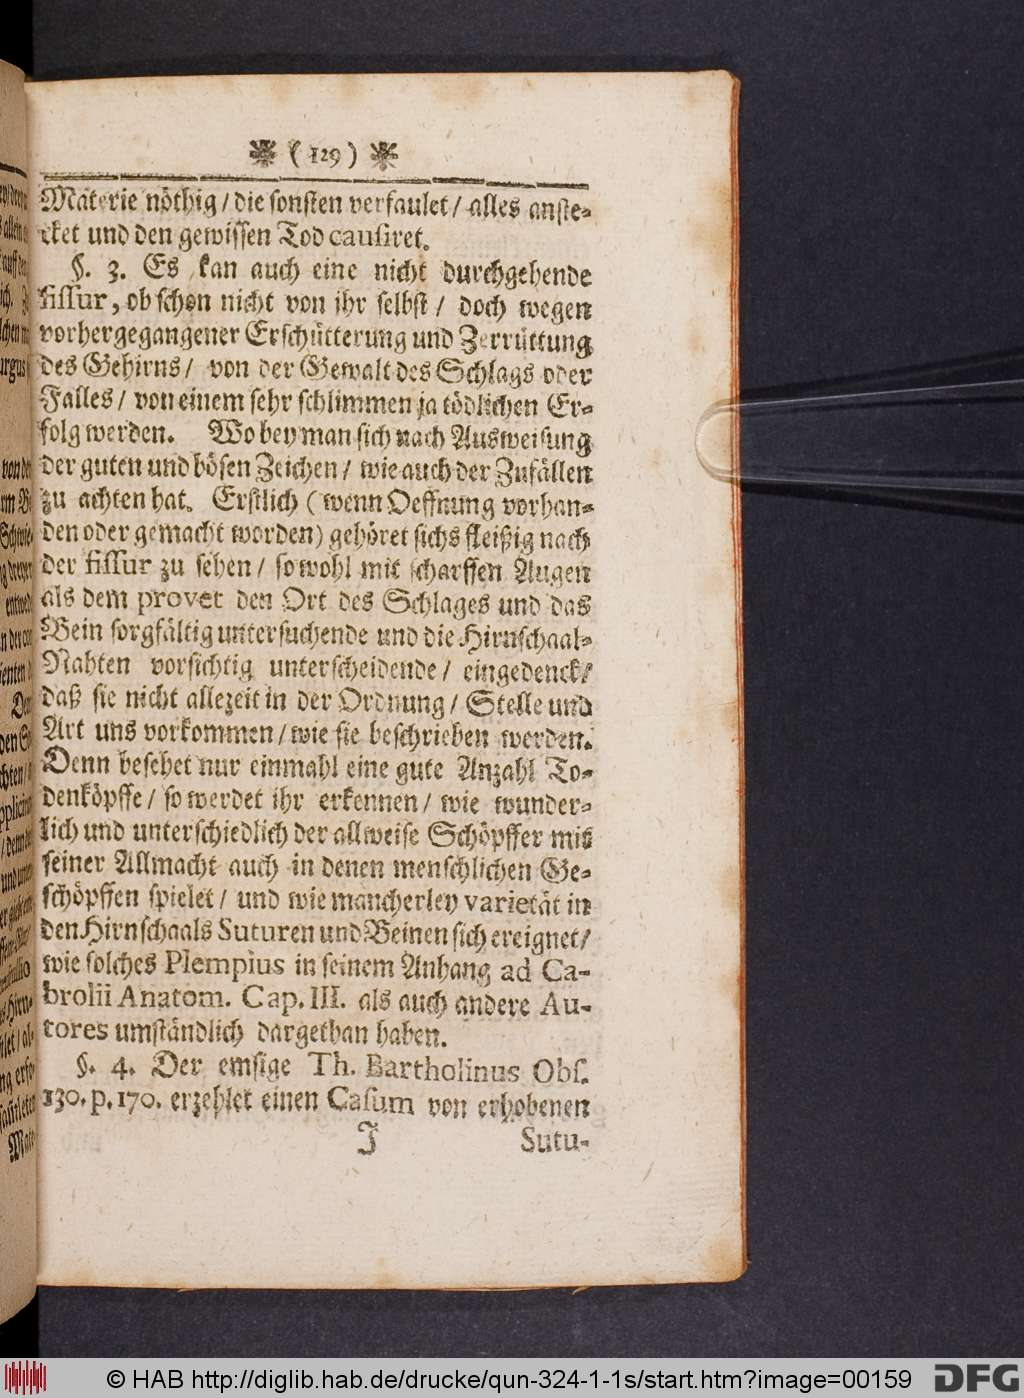 ( 129 )
Materie nöthig / die sonsten verfaulet / alles anste-
cket und den gewissen Tod causiret.
§. 3. Es kan auch eine nicht durchgehende
fissur, ob schon nicht von ihr selbst / doch wegen
vorhergegangener Erschütterung und Zerrüttung
des Gehirns / von der Gewalt des Schlags oder
Falles / von einem sehr schlimmen ja tödlichen Er-
folg werden. Wobey man sich nach Ausweisung
der guten und bösen Zeichen / wie auch der Zufällen
zu achten hat. Erstlich ( wenn Oeffnung vorhan-
den oder gemacht worden) gehöret sichs fleißig nach
der fissur zu sehen / so wohl mit scharffen Augen
als dem provet den Ort des Schlages und das
Bein sorgfältig untersuchende und die Hirnschaal-
Nahten vorsichtig unterscheidende / eingedenck /
daß sie nicht allezeit in der Ordnung / Stelle und
Art uns vorkommen / wie sie beschrieben werden.
Denn besehet nur einmahl eine gute Anzahl To-
denköpffe / so werdet ihr erkennen / wie wunder-
lich und unterschiedlich der allweise Schöpffer mit
seiner Allmacht auch in denen menschlichen Ge-
schöpffen spielet / und wie mancherley varietät in
den Hirnschaals Suturen und Beinen sich ereignet /
wie solches Plempius in seinem Anhang ad Ca-
brolii Anatom. Cap. III. als auch andere Au-
tores umständlich dargethan haben.
§. 4. Der emsige Th. Bartholinus Obs.
130. p. 170. erzehlet einen Casum von erhobenen
J Sutu-
© HAB http://diglib.hab.de/drucke/qun-324-1-1s/start.htm?image=00159
DFG